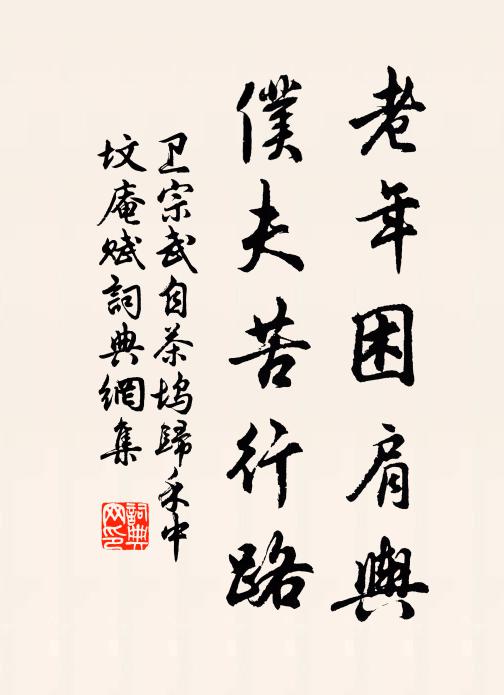 老年困肩輿
僕夫苦行路
卫宗武自茶塢歸禾中
坟庵赋詞典網集
詞典
网印